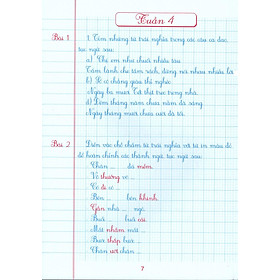 Tuần 4
Bài 1
1. Tìm những từ trái nghĩa trong các câu ca dao,
tục ngữ sau.
a) Chị em như chuối nhiều tàu
Tấm lành che tấm rách, đừng nói nhau nhiều lời
b) Ai có chẳng giàu thì nghèo
Ngày ba mươi Tết thịt treo trong nhà.
Đêm tháng năm chưa nằm đã sáng
Ngày tháng mười chưa cười đã tối.
Bài 2
Điền vào chỗ chấm từ trái nghĩa với từ in màu đỏ
để hoàn chỉnh các thành ngữ, tục ngữ sau.
Chân ... đá mềm.
Vô thưởng vô...
Có đi có ...
Bên ... bên khinh.
Gần nhà ... ngõ.
Bước ... bước cái
Mắt nhắm mắt ...
Bước thấp bước ...
Chân ướt chân ...
7